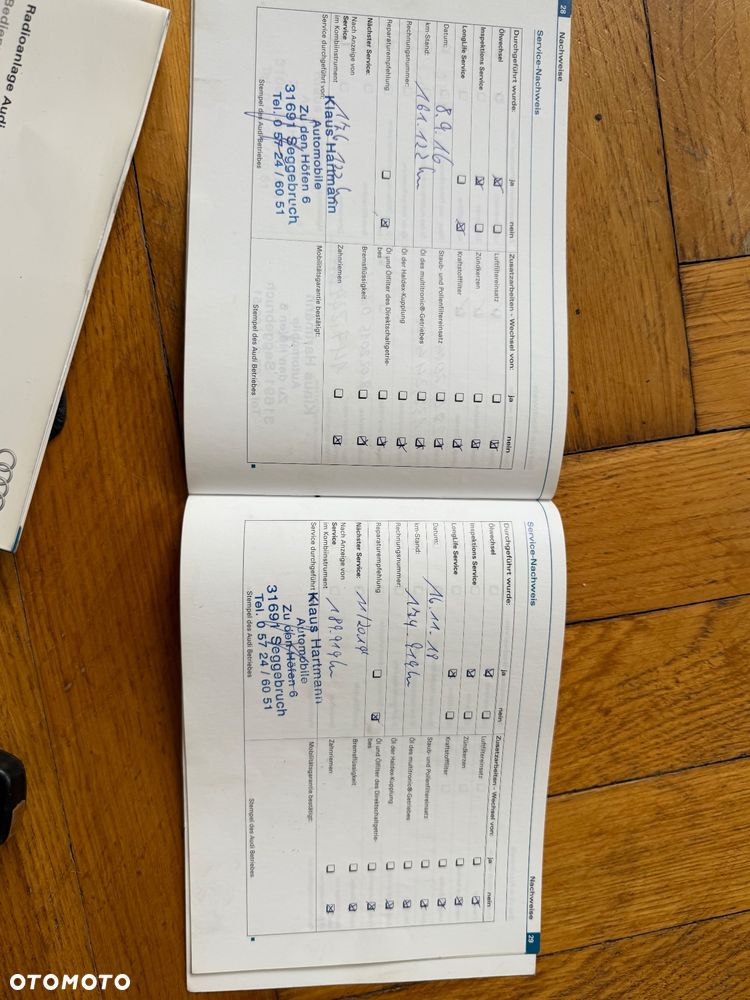 Radioanlage Audi
28
Nachweise
Service-Nachweis
Durchgeführt wurde:
ja
nein
Zusatzarbeiten - Wechsel von:
ja
nein
Ölwechsel
Luftfiltereinsatz
Inspektions Service
Zündkerzen
LongLife Service
Kraftstofffilter
Datum:
8.9.16
Staub- und Pollenfiltereinsatz
km-Stand:
161.122 km
Öl des multitronic®-Getriebes
Rechnungsnummer:
Öl der Haldex-Kupplung
Reparaturempfehlung
Öl und Ölfilter des Direktschaltgetrie-
bes
Nächster Service:
Bremsflüssigkeit
Nach Anzeige von
Service
im Kombiinstrument
176.122 km
Zahnriemen
Service durchgeführt von:
Mobilitätsgarantie bestätigt:
Klaus Hartmann
Automobile
Zu den Höfen 6
31691 Seggebruch
Tel. 0 57 24 / 60 51
Stempel des Audi Betriebes
Stempel des Audi Betriebes
Service-Nachweis
Nachweise
29
Durchgeführt wurde:
ja
nein
Zusatzarbeiten - Wechsel von:
ja
nein
Ölwechsel
Luftfiltereinsatz
Inspektions Service
Zündkerzen
LongLife Service
Kraftstofffilter
Datum:
16.11.18
Staub- und Pollenfiltereinsatz
km-Stand:
174.919 km
Öl des multitronic®-Getriebes
Rechnungsnummer:
Öl der Haldex-Kupplung
Reparaturempfehlung
Öl und Ölfilter des Direktschaltgetrie-
bes
Nächster Service:
11/2019
Bremsflüssigkeit
Nach Anzeige von
Service
im Kombiinstrument
189.919 km
Zahnriemen
Service durchgeführt
Mobilitätsgarantie bestätigt:
Klaus Hartmann
Automobile
Zu den Höfen 6
31691 Seggebruch
Tel. 0 57 24 / 60 51
Stempel des Audi Betriebes
Stempel des Audi Betriebes
OTOMOTO